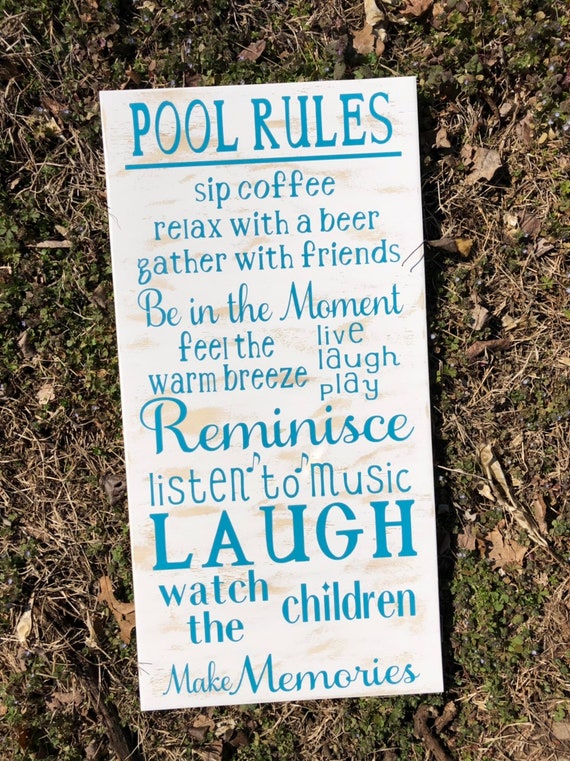 POOL RULES
sip coffee
relax with a beer
gather with friends
Be in the Moment
feel the
warm breeze
live
laugh
play
Reminisce
listen to music
LAUGH
watch
the
children
Make Memories